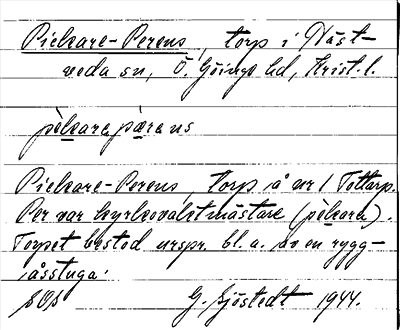 Pickare-Perens, torp i Näst-
veda sn, Ö. Göinge hd, Krist. l.
pèkarapærens
Pickare-Perens, torp å nr 1 Tottarp.
Per var kyrkovaktmästare (pèkara).
Torpet bestod urspr. bl. a. av en rygg-
åsstuga.
G. Sjöstedt 1944.